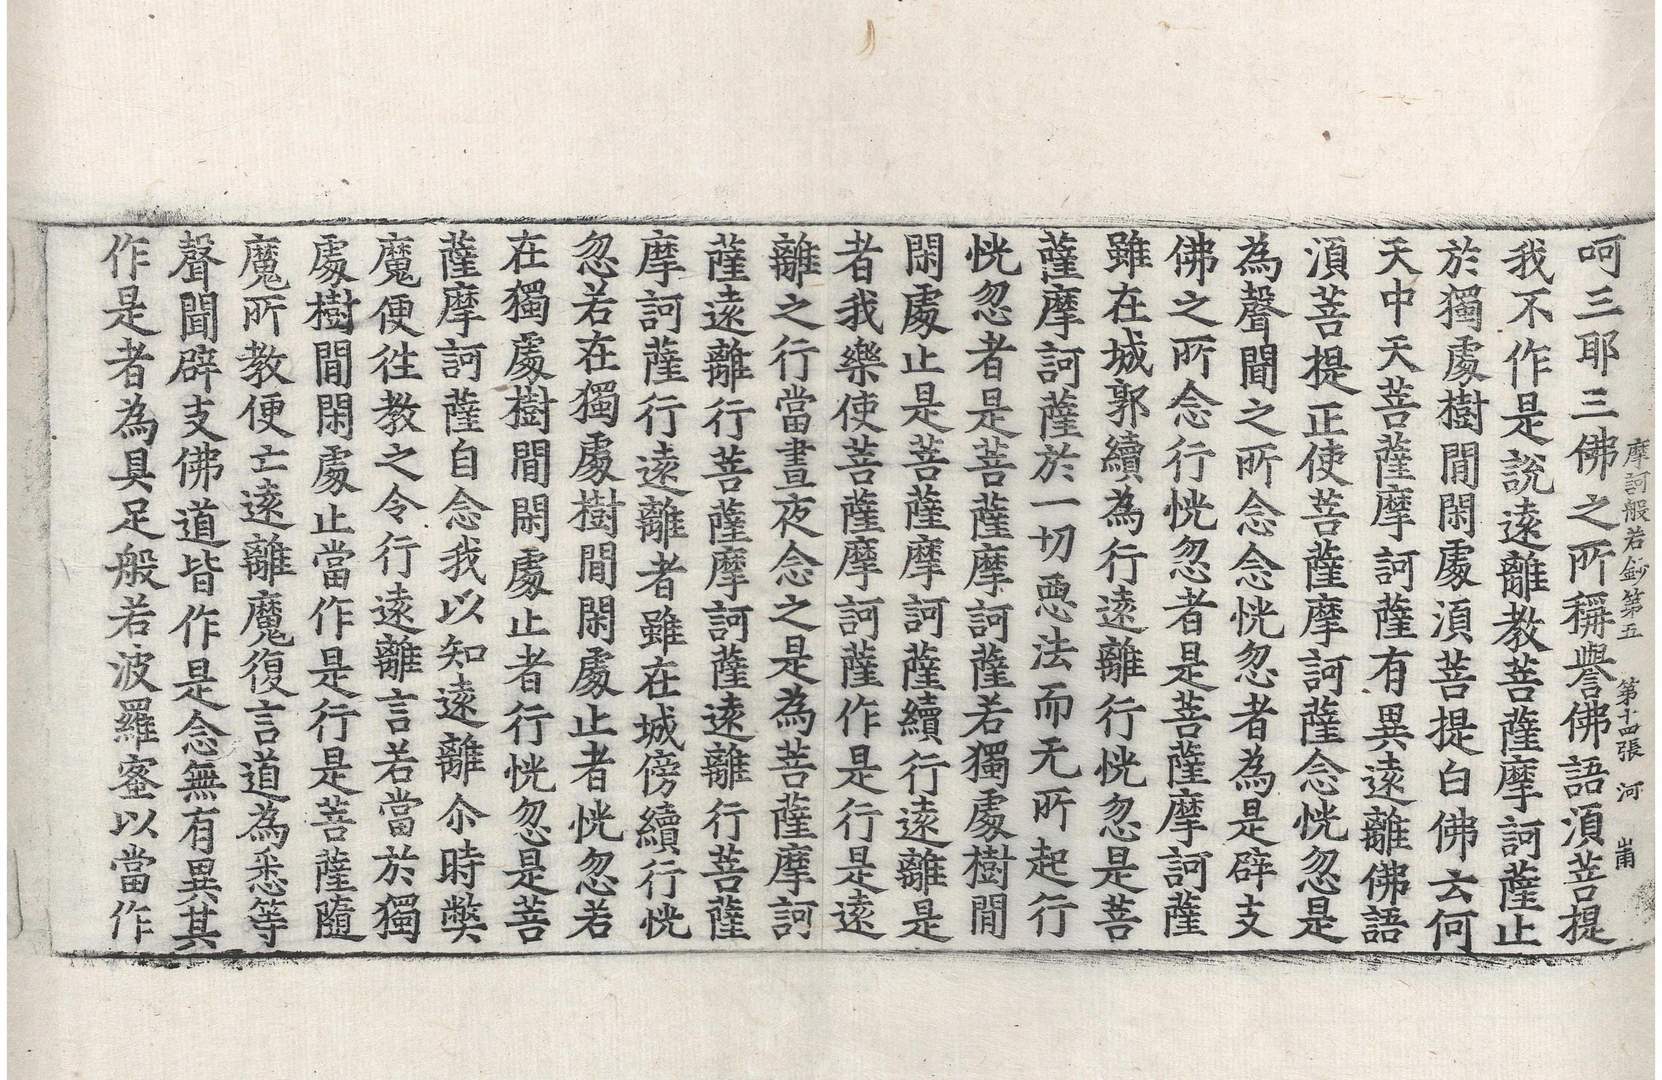 摩訶般若鈔第五　第十四張　河　甫
呵三耶三佛之所稱譽佛語湏菩提
我不作是說遠離教菩薩摩訶薩止
於獨處樹間閑處湏菩提白佛云何
天中天菩薩摩訶薩有異遠離佛語
湏菩提正使菩薩摩訶薩念恍忽是
為聲聞之所念念恍忽者為是辟支
佛之所念行恍忽者是菩薩摩訶薩
雖在城郭續為行遠離行恍忽是菩
薩摩訶薩於一切惡法而无所起行
恍忽者是菩薩摩訶薩若獨處樹間
閑處止是菩薩摩訶薩續行遠離是
者我樂使菩薩摩訶薩作是行是遠
離之行當晝夜念之是為菩薩摩訶
薩遠離行菩薩摩訶薩遠離行菩薩
摩訶薩行遠離者雖在城傍續行恍
忽若在獨處樹間閑處止者恍忽若
在獨處樹間閑處止者行恍忽是菩
薩摩訶薩自念我以知遠離尒時弊
魔便往教之令行遠離言若當於獨
處樹間閑處止當作是行是菩薩隨
魔所教便亡遠離魔復言道為悉等
聲聞辟支佛道皆作是念無有異其
作是者為具足般若波羅蜜以當作